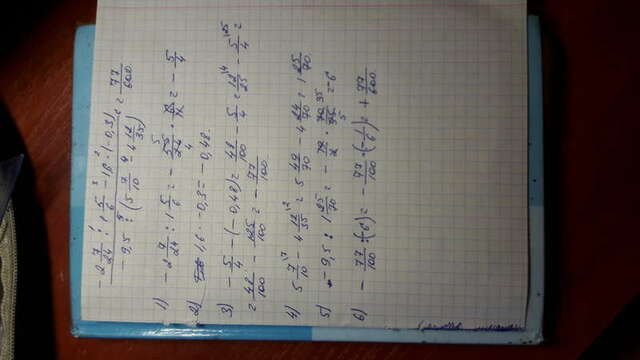 -2 7/24 : 1 5/6 - 1,6 · (-0,3)
-9,5 : (5 7/10 - 4 12/35) = 77/600
1) -2 7/24 : 1 5/6 = - 55/24 · 6/11 = - 5/4
2) 1,6 · -0,3 = -0,48.
3) - 5/4 - (-0,48) = 48/100 - 5/4 = 12/25 - 5/4 =
= 48/100 - 125/100 = - 77/100
4) 5 7/10 - 4 12/35 = 5 49/70 - 4 24/70 = 1 25/70
5) -9,5 : 1 25/70 = - 19/2 · 70/95 = -6
6) - 77/100 : (-6) = - 77/100 · (- 1/6) = + 77/600